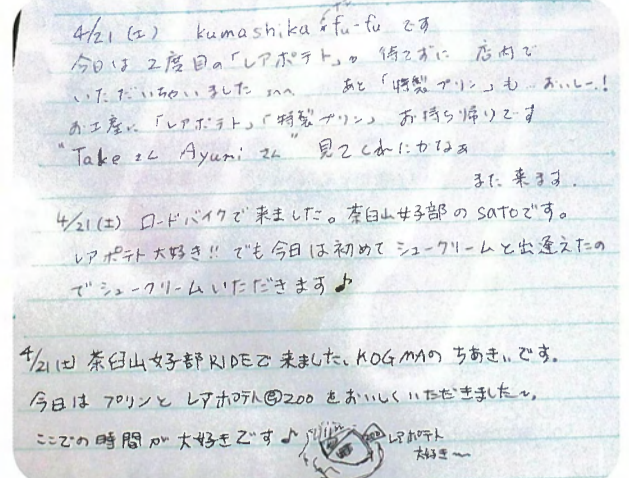 4/21(土) kumashika fu-fu です
今日は2度目の「レアポテト」が 待てずに 店内で
いただいちゃいました あと「特製プリン」も…おいしー.!
お土産に「レアポテト」「特製プリン」お持ち帰りです
"Takeさん Ayumiさん" 見てくれたかなぁ
また 来ます.
4/21(土) ロードバイクで来ました。茶臼山女子部のsatoです。
レアポテト大好き!! でも今日は初めてシュークリームと出逢えたの
でシュークリームいただきます♪
4/21(土) 茶臼山女子部RIDEで来ました、KOGMAの ちあきぃです。
今日は プリンと レアポテト 200 をおいしくいただきました〜。
ここでの時間が大好きです♪
レアポテト
大好き〜